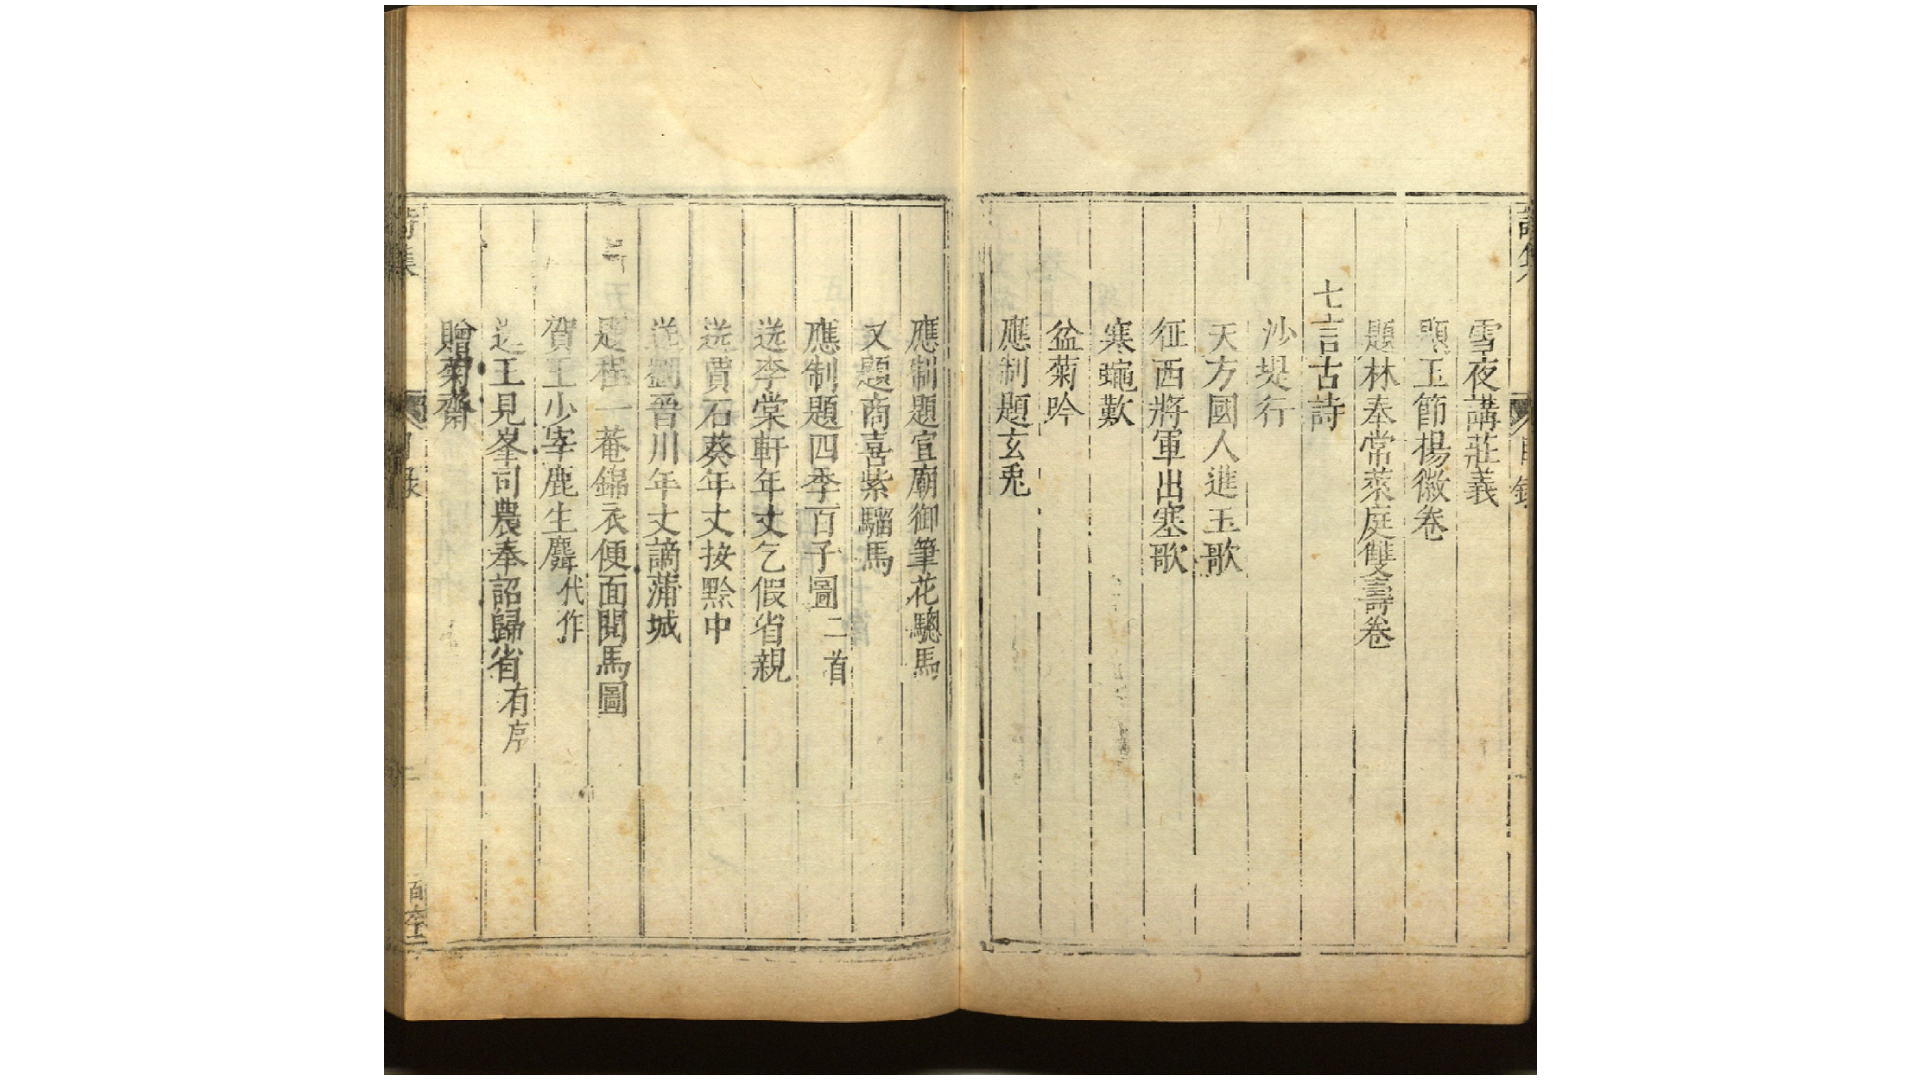 雪夜講莊義
題玉節楊徽卷
題林奉常萊庭雙壽卷
七言古詩
沙堤行
天方國人進玉歌
征西將軍出塞歌
寒蠅歎
盆菊吟
應制題玄兎
應制題宣廟御筆花驄馬
又題商喜紫騮馬
應制題四季百子圖二首
送李棠軒年丈乞假省親
送賈石葵年丈按黔中
送劉晉川年丈謫蒲城
題程一菴錦衣便面閱馬圖
賀王少宰鹿生麟代作
送王見峯司農奉詔歸省有序
贈菊齋
詩集
目錄